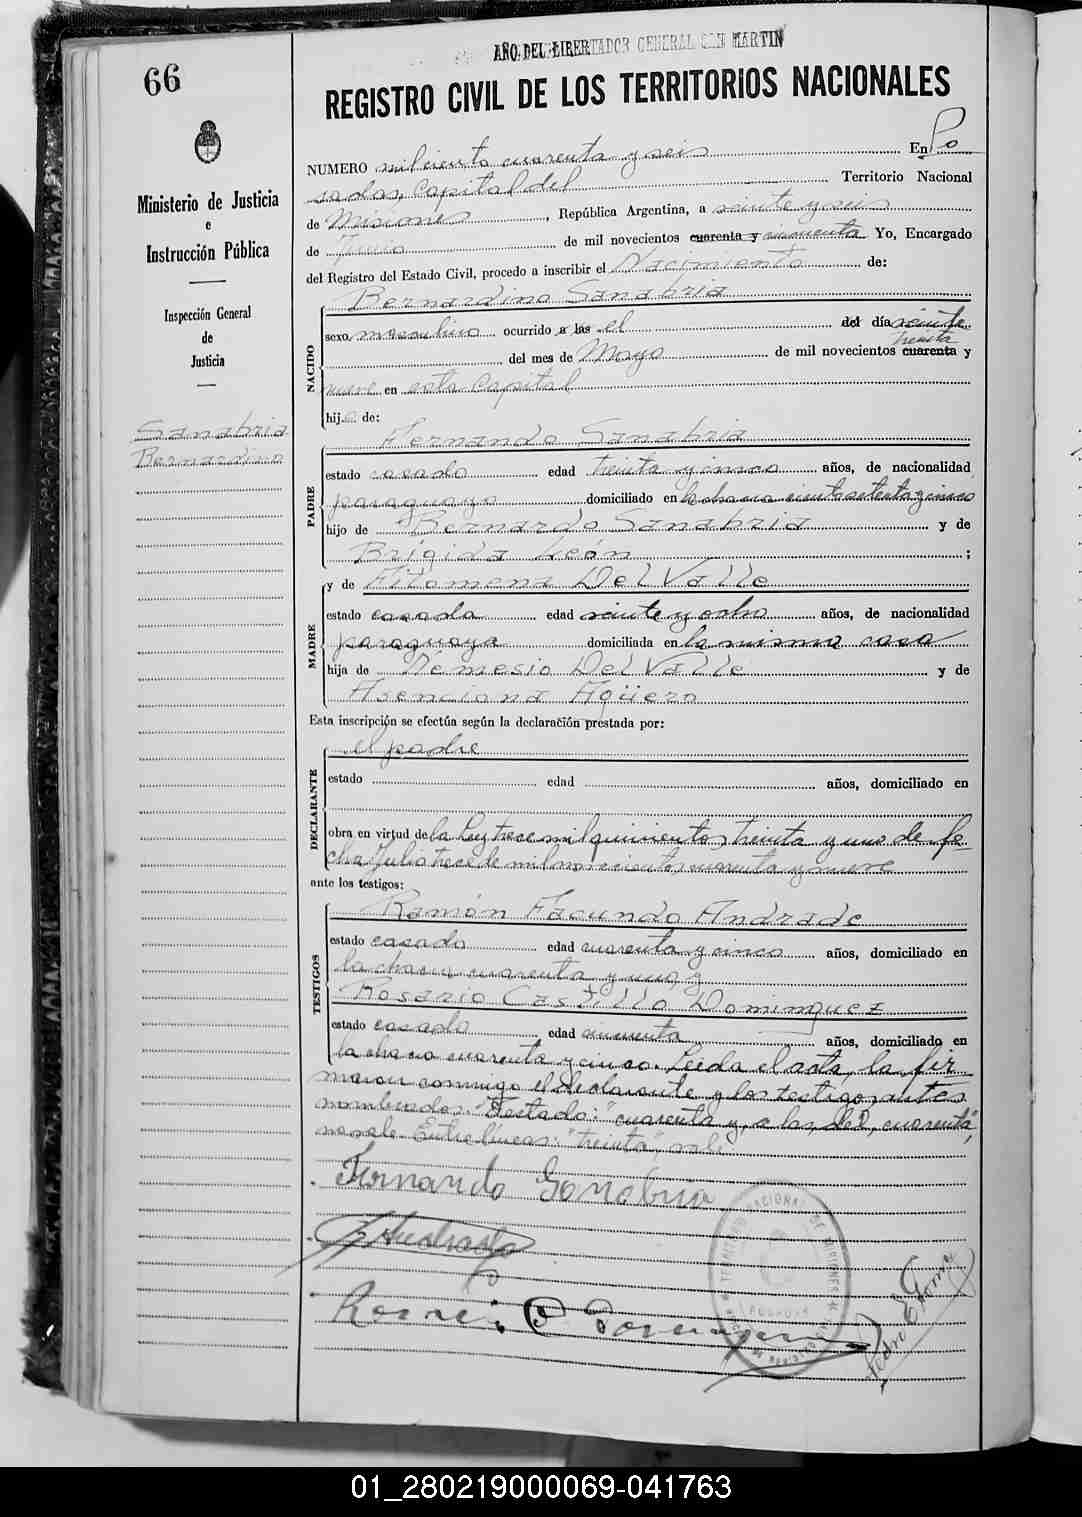 66
AÑO DEL LIBERTADOR GENERAL SAN MARTIN
REGISTRO CIVIL DE LOS TERRITORIOS NACIONALES
Ministerio de Justicia
e
Instrucción Pública
Inspección General
de
Justicia
Sanabria
Bernardino
NUMERO mil ciento cuarenta y seis En Po
sadas, Capital del Territorio Nacional
de Misiones, República Argentina, a veinte y seis
de Junio de mil novecientos cuarenta y cincuenta Yo, Encargado
del Registro del Estado Civil, procedo a inscribir el Nacimiento de:
Bernardino Sanabria
NACIDO
sexo masculino ocurrido a las el del día veinte
treinta
del mes de Mayo de mil novecientos cuarenta y
nueve en esta Capital
hijo de:
Fernando Sanabria
PADRE
estado casado edad treinta y cinco años, de nacionalidad
paraguaya domiciliado en la chacra ciento setenta y cinco
hijo de Bernardo Sanabria y de
Brígida León ;
y de Filomena Del Valle
MADRE
estado casada edad veinte y ocho años, de nacionalidad
paraguaya domiciliada en la misma casa
hija de Nemesio Del Valle y de
Asenciona Agüero
Esta inscripción se efectúa según la declaración prestada por:
el padre
DECLARANTE
estado edad años, domiciliado en
obra en virtud de la Ley trece mil quinientos treinta y uno de fe-
cha Julio trece de mil novecientos cuarenta y nueve
ante los testigos:
Ramón Facundo Andrade
TESTIGOS
estado casado edad cuarenta y cinco años, domiciliado en
la chacra cuarenta y uno y
Rosario Castillo Dominguez
estado casado edad cincuenta años, domiciliado en
la chacra cuarenta y cinco. Leida el acta, la fir
maron conmigo el declarante y los testigos antes
nombrados. "Testado:" cuarenta y, a las, del, cuarenta",
no vale. Entrelíneas: "treinta", vale.
Fernando Sanabria
Andrade
TERRITORIO NACIONAL DE MISIONES
01_280219000069-041763